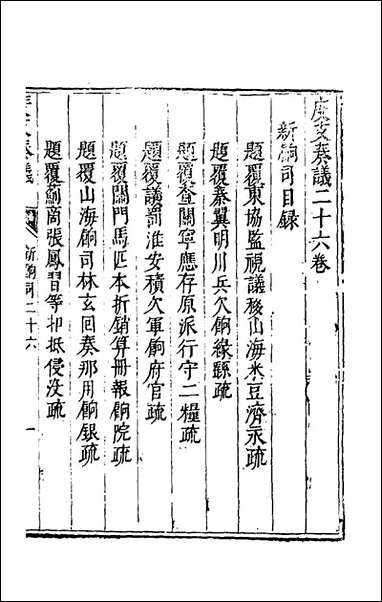 度支奏議二十六卷
新餉司目錄
題覆東協監視議移山海米豆濟永疏
題覆秦翼明川兵欠餉緣繇疏
題覆查關寧應存原派行守二糧疏
題覆議罰淮安積欠軍餉府官疏
題覆關門馬匹本折銷算冊報餉院疏
題覆山海餉司林玄回奏那用餉銀疏
題覆薊商張鳳習等抑抵侵沒疏
度支奏議
新餉司二十六
一